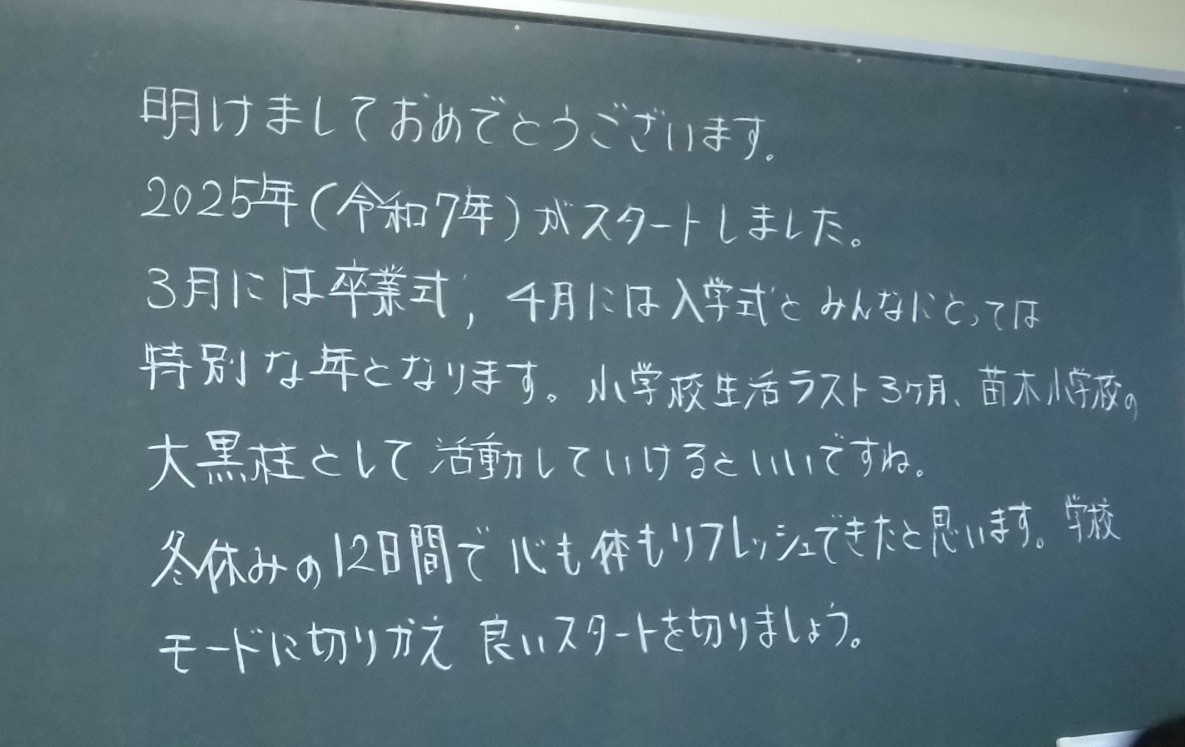 明けましておめでとうございます。
2025年(令和7年)がスタートしました。
3月には卒業式, 4月には入学式とみんなにとっては
特別な年となります。小学校生活ラスト3ヶ月、苗木小学校の
大黒柱として活動していけるといいですね。
冬休みの12日間で心も体もリフレッシュできたと思います。学校
モードに切りかえ 良いスタートを切りましょう。